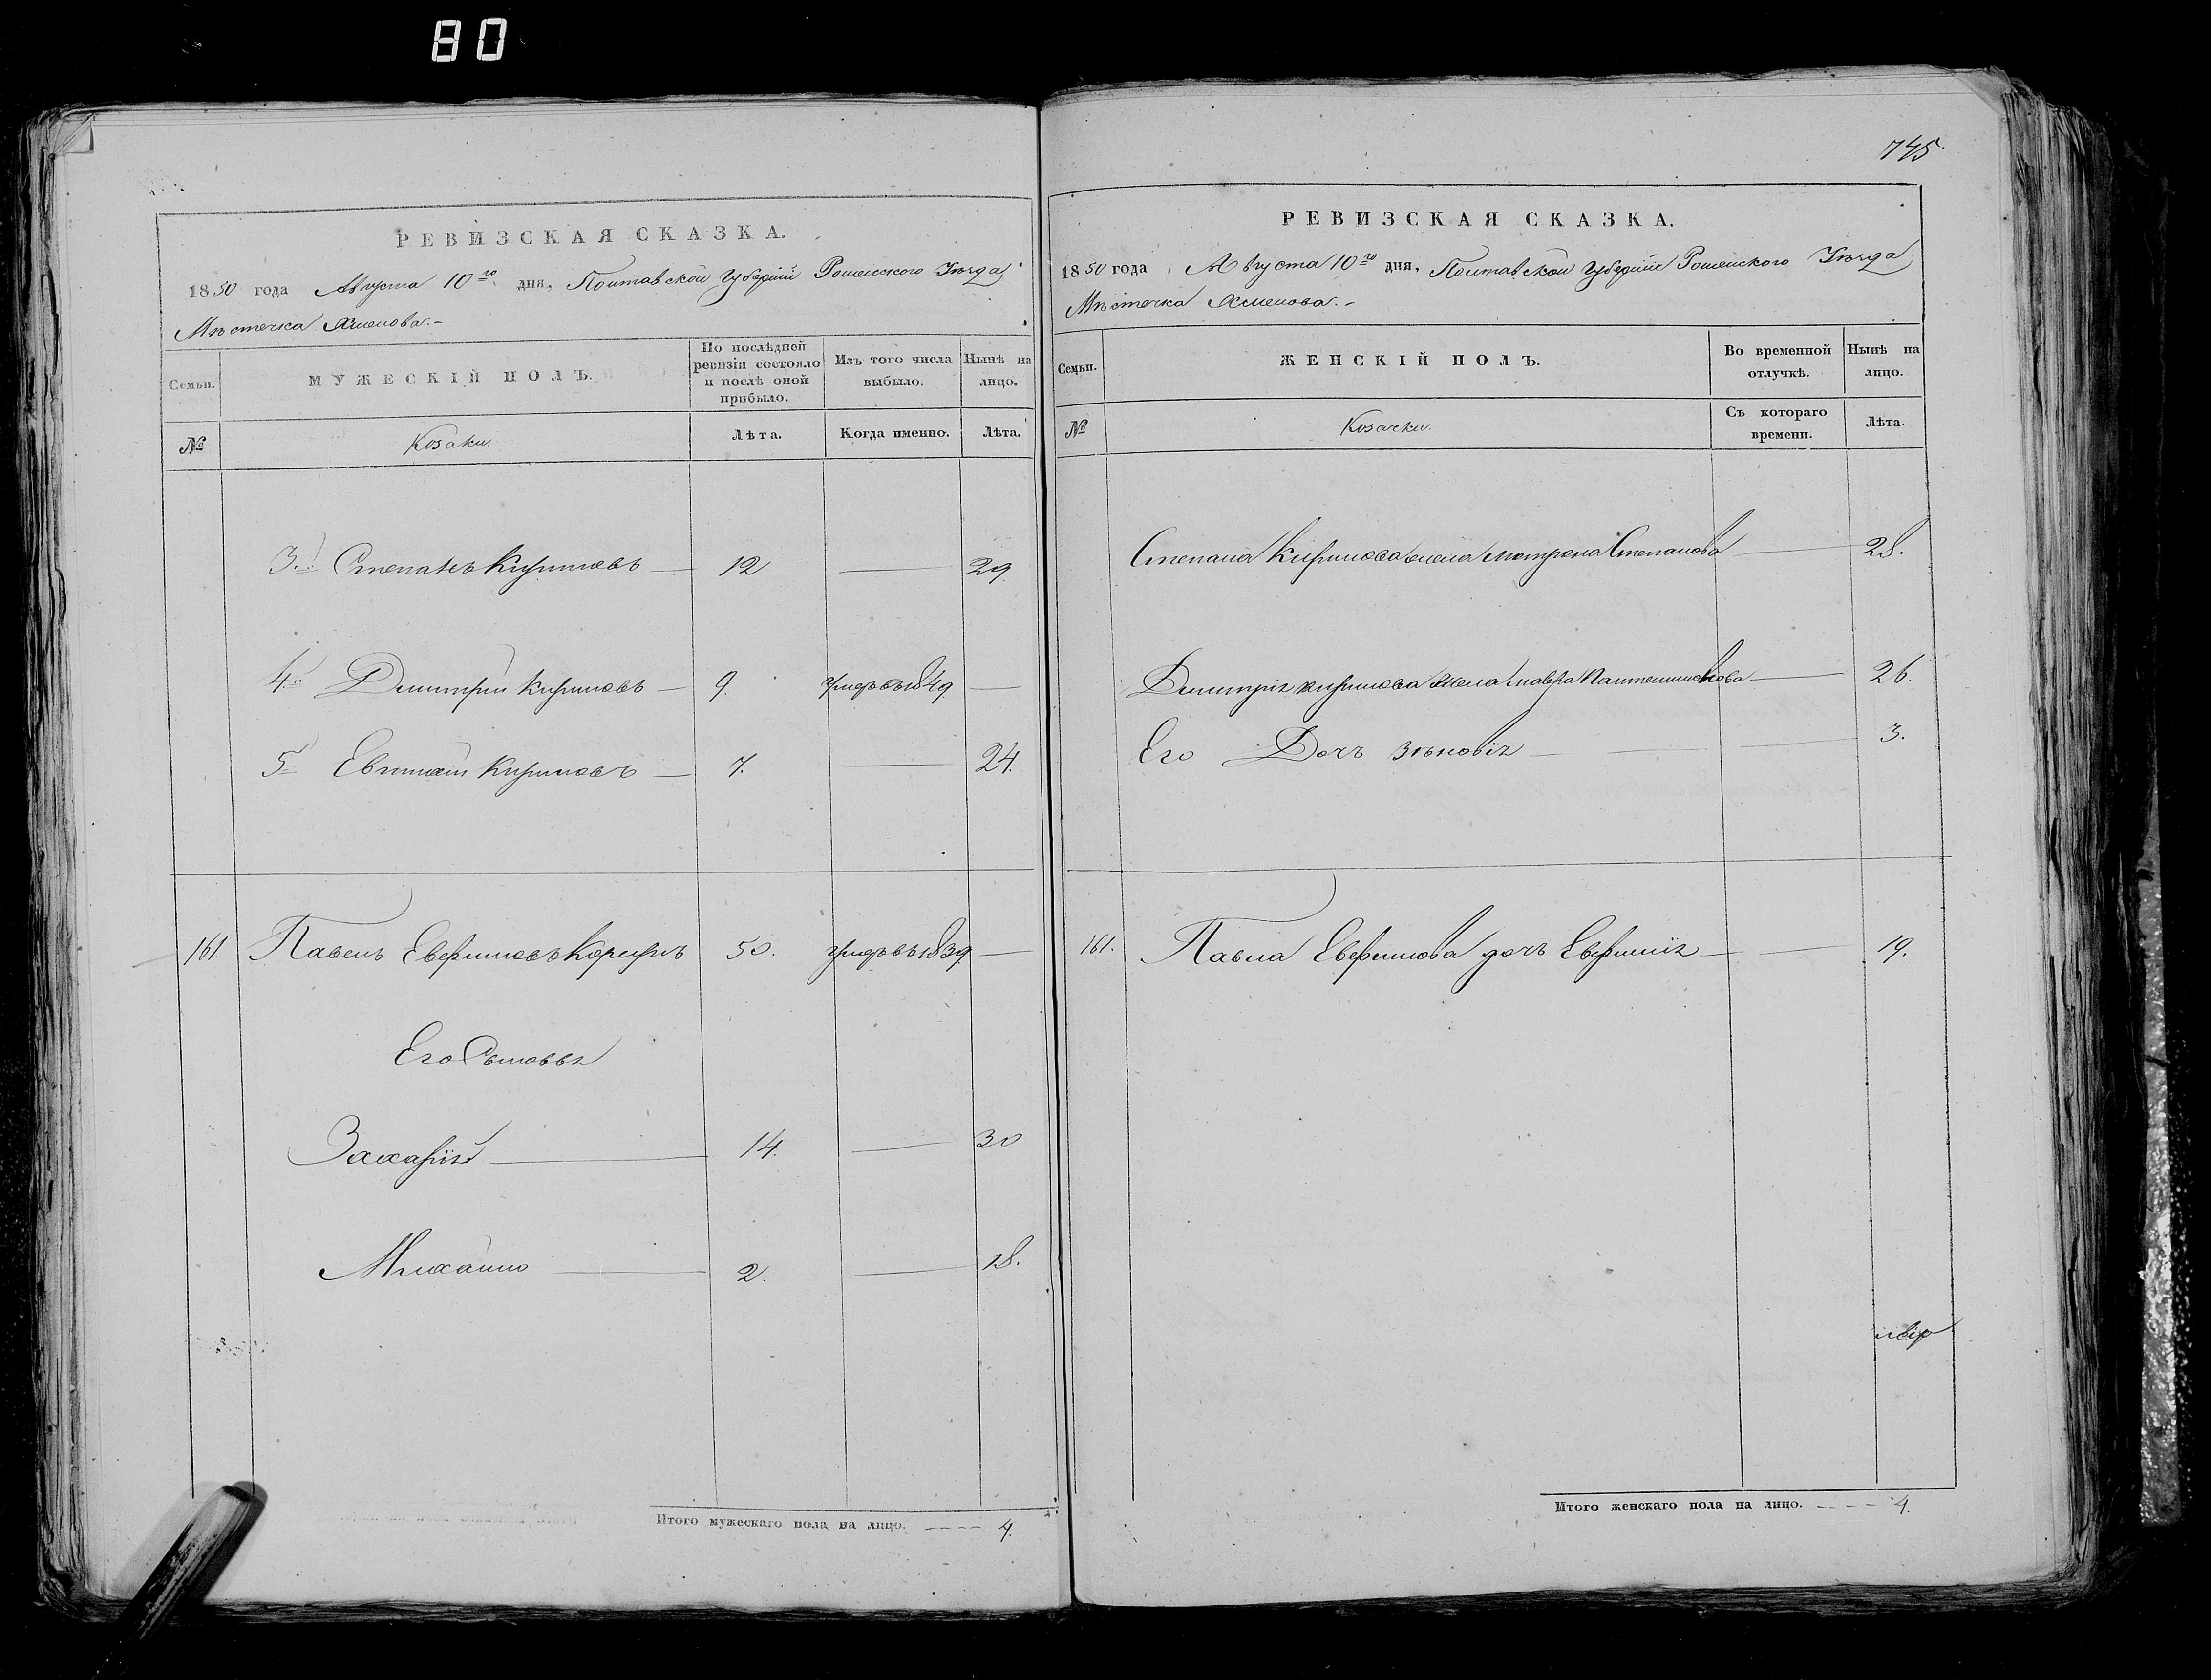 80
745
РЕВИЗСКАЯ СКАЗКА.
1850 года Августа 10го дня, Полтавской Губерніи Роменского Уѣзда
Мѣстечка Хмелова.-
Семьи.
МУЖЕСКІЙ ПОЛЪ.
По послѣдней ревизіи состояло и послѣ оной прибыло.
Изъ того числа выбыло.
Нынѣ на лицо.
№
Козаки.
Лѣта.
Когда именно.
Лѣта.
3. Степанъ Кириловъ 12 — 29
4. Димитрій Кириловъ 9. умеръ въ 1849 —
5 Кириловъ 7. — 24.
161. Павелъ 50. умеръ въ 1839 —
Его Сыновья
Захарій 14. — 30
Михайло 2. — 18.
Итого мужескаго пола на лицо. ---- 4.
РЕВИЗСКАЯ СКАЗКА.
1850 года Августа 10го дня, Полтавской Губерніи Роменского Уѣзда
Мѣстечка Хмелова.-
Семьи.
ЖЕНСКІЙ ПОЛЪ.
Во временной отлучкѣ.
Нынѣ на лицо.
№
Козачки.
Съ котораго времени.
Лѣта.
Степана Кирилова жена Мотрона Степанова — 28.
Димитрія Кирилова жена Мавра — 26.
Его Дочь Зѣновія — 3.
161. Павла дочь — 19.
Итого женскаго пола на лицо. ---- 4.